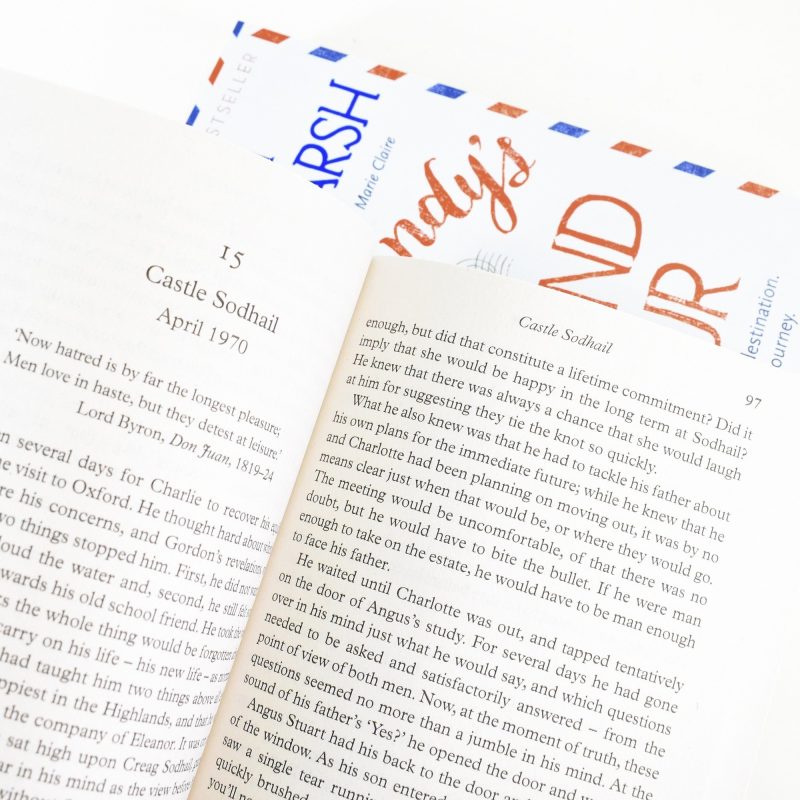 STSELLER
ARSH
Marie Claire
ndy's
ND
UR
destination.
ourney.
15
Castle Sodhail
April 1970
'Now hatred is by far the longest pleasure;
Men love in haste, but they detest at leisure.'
Lord Byron, Don Juan, 1819–24
several days for Charlie to recover his
visit to Oxford. He thought hard about
his concerns, and Gordon's revelations
two things stopped him. First, he did not
the water and, second, he still
towards his old school friend. He took the
the whole thing would be forgotten
carry on his life – his new life – as
had taught him two things above
in the Highlands, and that
the company of Eleanor. It was
sat high upon Creag Sodhail
in his mind as the view before
Castle Sodhail
97
enough, but did that constitute a lifetime commitment? Did it
imply that she would be happy in the long term at Sodhail?
He knew that there was always a chance that she would laugh
at him for suggesting they tie the knot so quickly.
What he also knew was that he had to tackle his father about
his own plans for the immediate future; while he knew that he
and Charlotte had been planning on moving out, it was by no
means clear just when that would be, or where they would go.
The meeting would be uncomfortable, of that there was no
doubt, but he would have to bite the bullet. If he were man
enough to take on the estate, he would have to be man enough
to face his father.
He waited until Charlotte was out, and tapped tentatively
on the door of Angus's study. For several days he had gone
over in his mind just what he would say, and which questions
needed to be asked and satisfactorily answered – from the
point of view of both men. Now, at the moment of truth, these
questions seemed no more than a jumble in his mind. At the
sound of his father's 'Yes?' he opened the door and
Angus Stuart had his back to the door
of the window. As his son entered
saw a single tear
quickly brushed
you'll